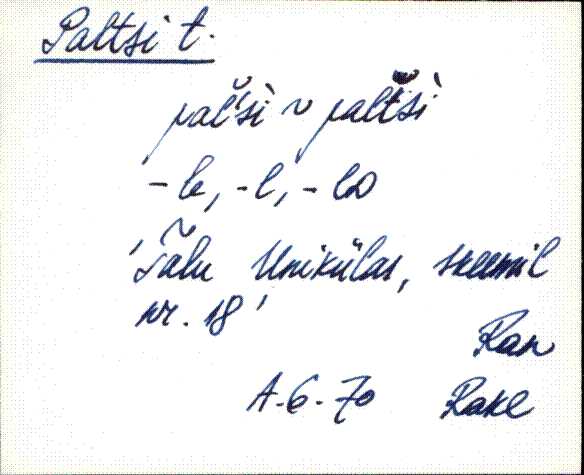 Paltsi t.
pal'si ~ paltši
-le, -l, -lD
'Talu Unikülas, skeemil
nr. 18'
Ran
A-6-70 Rake